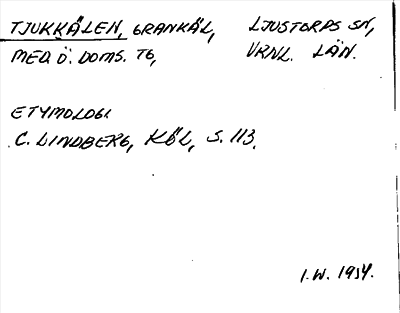 TJUKKÄLEN, GRANKÄL, LJUSTORPS SN,
MED. Ö. DOMS. TG, VRNL. LÄN.
ETYMOLOGI
C. LINDBERG, KÖL, S. 113.
I.W. 1954.